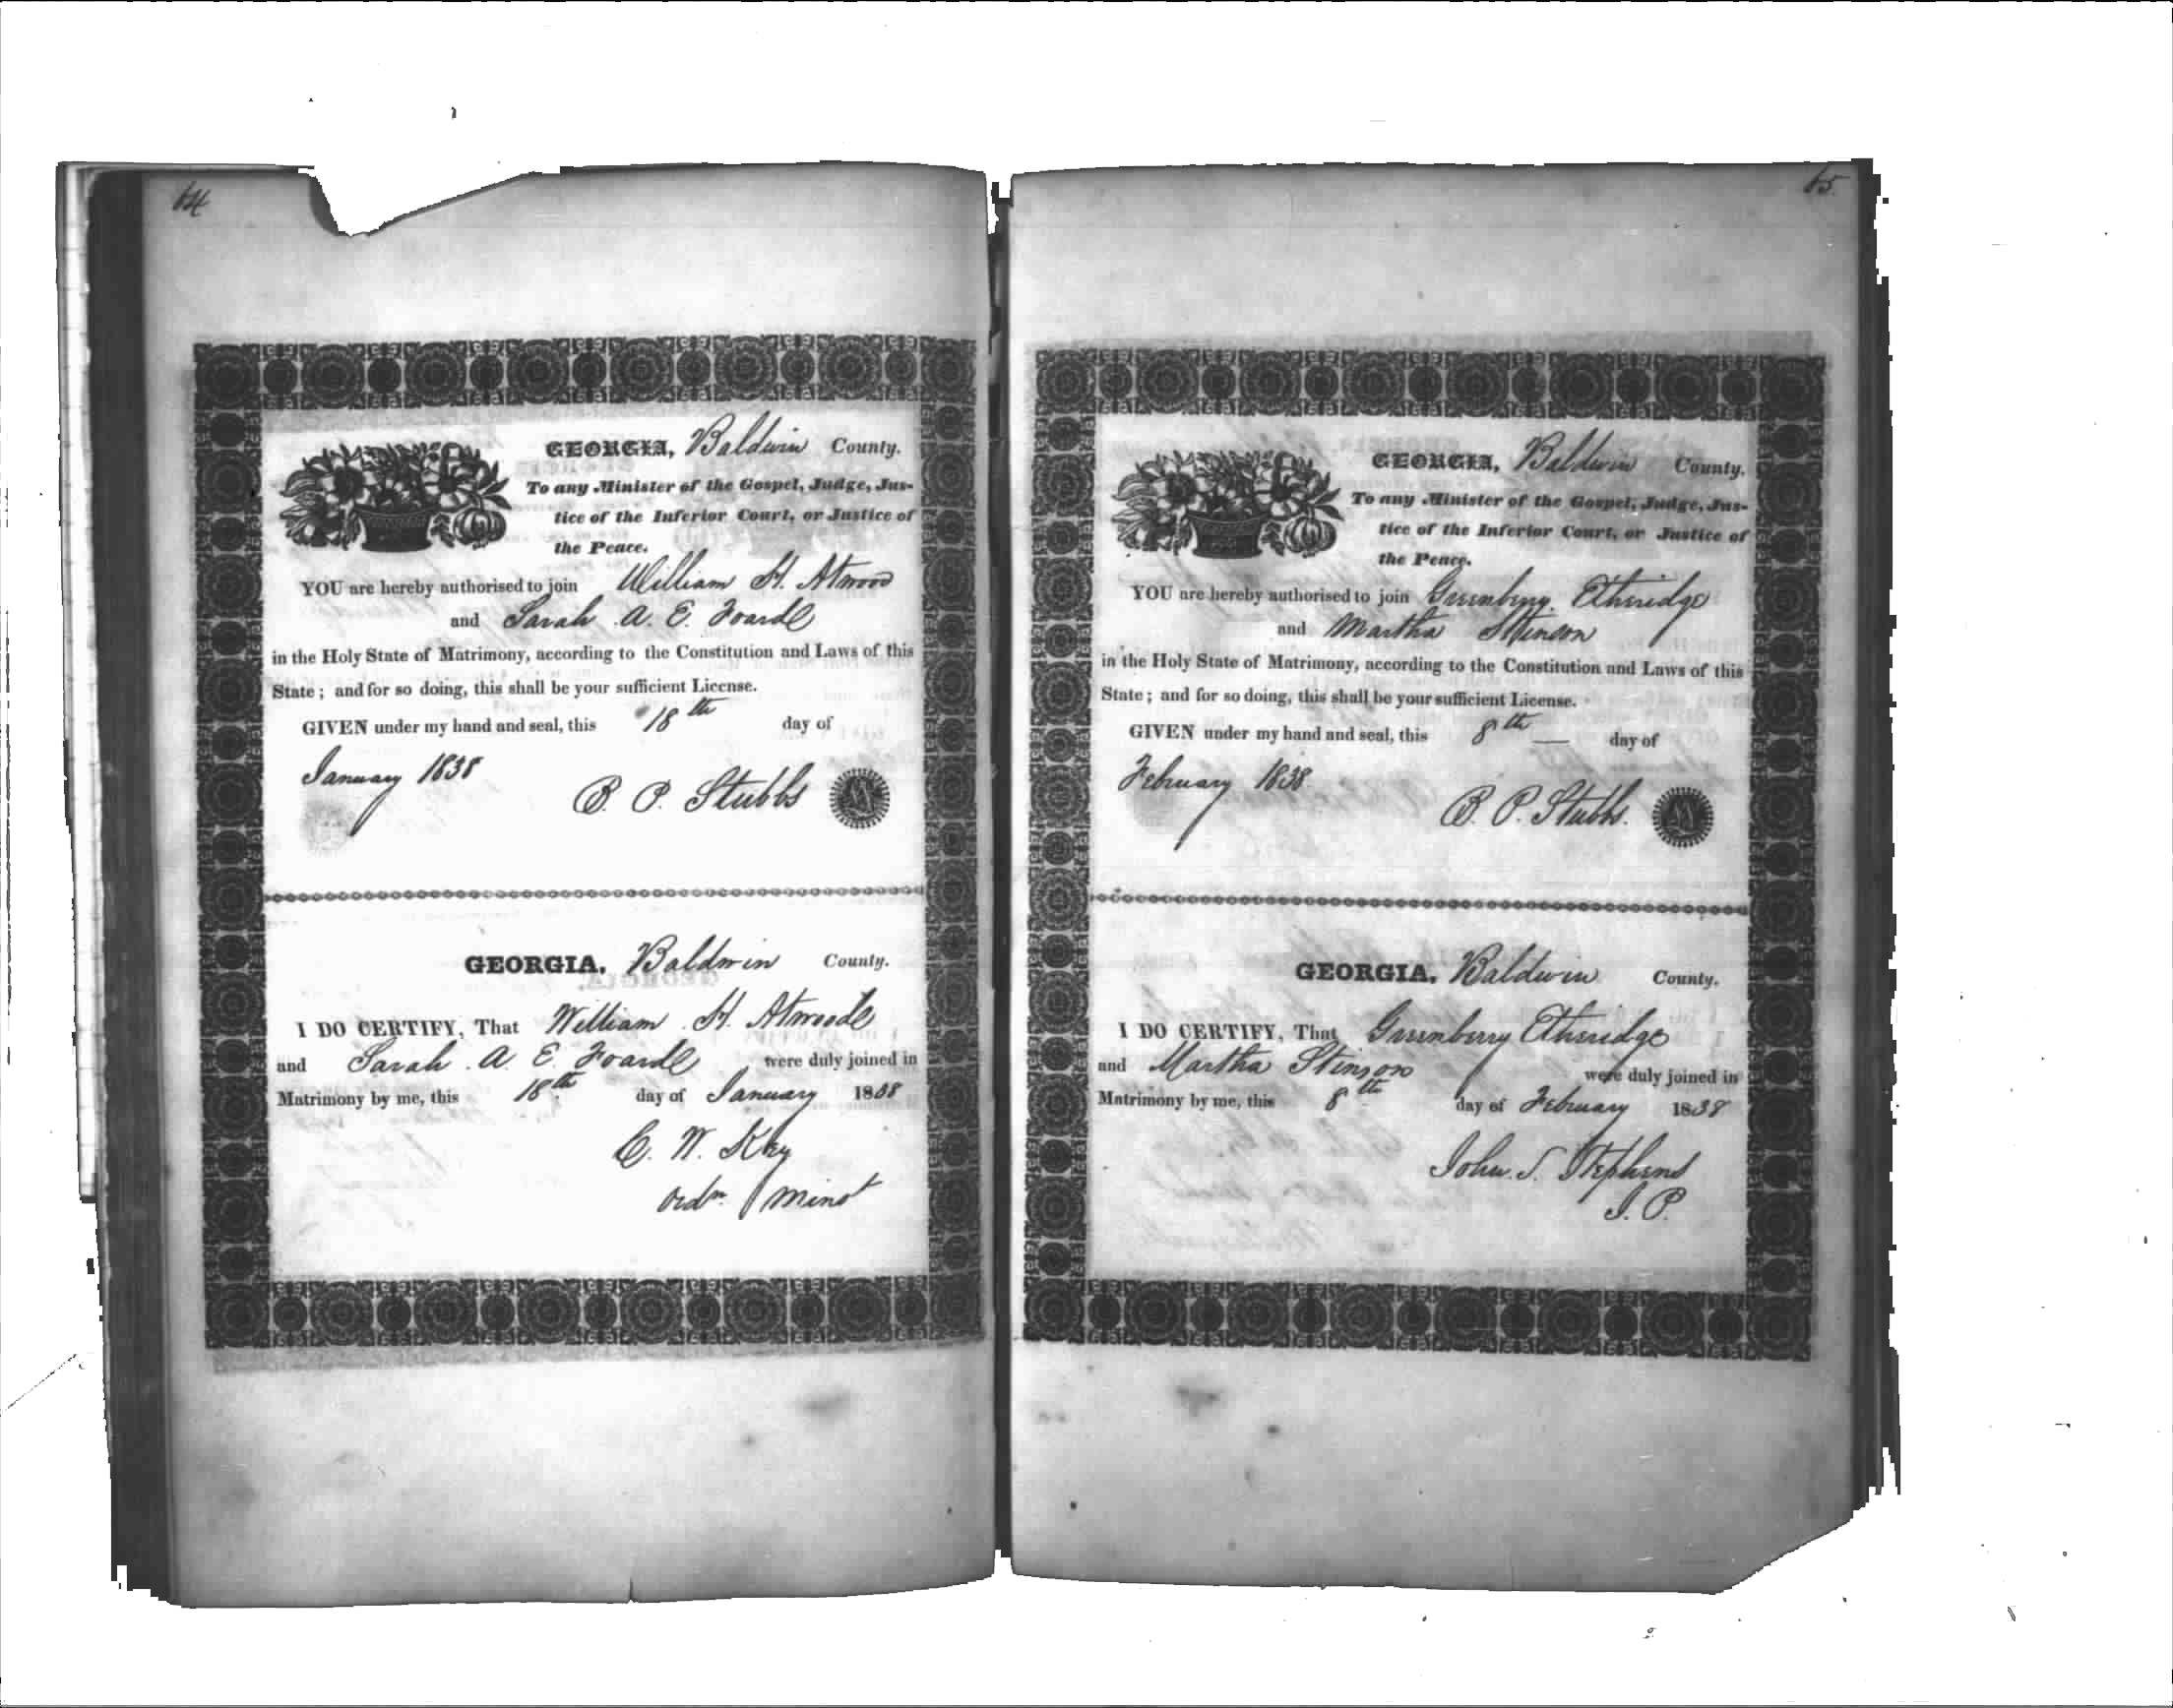 64
GEORGIA, Baldwin County.
To any Minister of the Gospel, Judge, Jus-
tice of the Inferior Court, or Justice of
the Peace.
YOU are hereby authorised to join William H. Atwood
and Sarah A. E. Foarde
in the Holy State of Matrimony, according to the Constitution and Laws of this
State; and for so doing, this shall be your sufficient License.
GIVEN under my hand and seal, this 18th day of
January 1838
B. P. Stubbs
GEORGIA, Baldwin County.
I DO CERTIFY, That William H. Atwoode
and Sarah A. E. Foarde were duly joined in
Matrimony by me, this 18th day of January 1838
C. W. Key
ordn. Minst
65
GEORGIA, Baldwin County.
To any Minister of the Gospel, Judge, Jus-
tice of the Inferior Court, or Justice of
the Peace.
YOU are hereby authorised to join Greenbery Etheridge
and Martha Stinson
in the Holy State of Matrimony, according to the Constitution and Laws of this
State; and for so doing, this shall be your sufficient License.
GIVEN under my hand and seal, this 8th day of
February 1838
B. P. Stubbs.
GEORGIA, Baldwin County.
I DO CERTIFY, That Greenberry Etheridge
and Martha Stinson were duly joined in
Matrimony by me, this 8th day of February 1838
John S. Stephens
J. P.